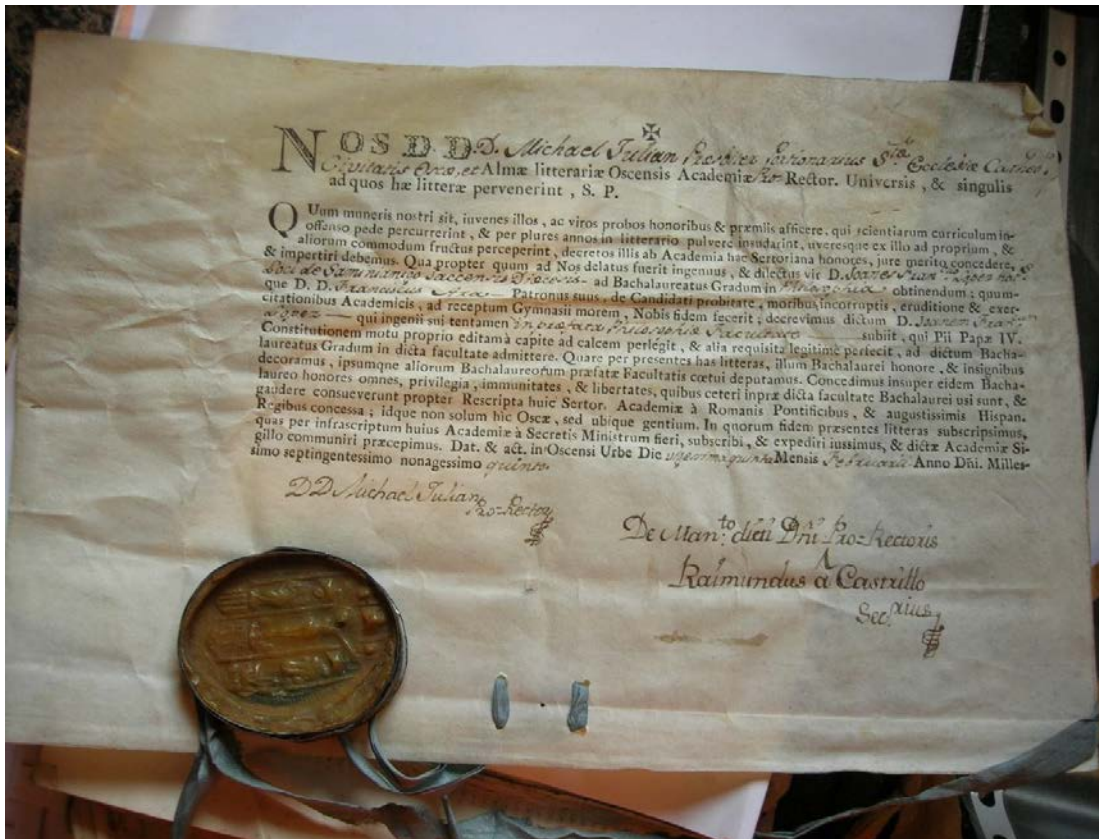 ✠
NOS D. D. D. Michael Julian Presbiter Portionarius Stæ Ecclesiæ
Civitatis Oscæ, et Almæ litterariæ Oscensis Academiæ Pro-Rector. Universis, & singulis
ad quos hæ litteræ pervenerint, S. P.
QUum muneris nostri sit, iuvenes illos, ac viros probos honoribus & præmiis afficere, qui scientiarum curriculum in-
offenso pede percurrerint, & per plures annos in litterario pulvere insudarint, uveresque ex illo ad proprium, &
aliorum commodum fructus perceperint, decretos illis ab Academia hac Sertoriana honores, jure merito concedere,
& impartiri debemus. Qua propter quum ad Nos delatus fuerit ingenuus, & dilectus vir D. Joanes
Loci de Jaccensis Diocesis - ad Bachalaureatus Gradum in Philosophia obtinendum; quum-
que D. D. Franciscus Patronus suus, de Candidati probitate, moribus incorruptis, eruditione & exer-
citationibus Academicis, ad receptum Gymnasii morem, Nobis fidem fecerit; decrevimus dictum D. Joanem
Lopez — qui ingenii sui tentamen in præfata Philosophiæ Facultate — subiit, qui Pii Papæ IV.
Constitutionem motu proprio editam à capite ad calcem perlegit, & alia requisita legitimè perfecit, ad dictum Bacha-
laureatus Gradum in dicta facultate admittere. Quare per presentes has litteras, illum Bachalaurei honore, & insignibus
decoramus, ipsumque aliorum Bachalaureorum præfatæ Facultatis cœtui deputamus. Concedimus insuper eidem Bacha-
laureo honores omnes, privilegia, immunitates, & libertates, quibus ceteri inpræ dicta facultate Bachalaurei usi sunt, &
gaudere consueverunt propter Rescripta huic Sertor. Academiæ à Romanis Pontificibus, & augustissimis Hispan.
Regibus concessa; idque non solum hic Oscæ, sed ubique gentium. In quorum fidem præsentes litteras subscripsimus,
quas per infrascriptum huius Academiæ à Secretis Ministrum fieri, subscribi, & expediri iussimus, & dictæ Academiæ Si-
gillo communiri præcepimus. Dat. & act. in Oscensi Urbe Die vigesima quinta Mensis Februarii Anno Dñi. Milles-
simo septingentessimo nonagessimo quinto.
DD Michael Julian
Pro-Rector
De Manto dicti Dni Pro-Rectoris
Raimundus à Castrillo
Secrius